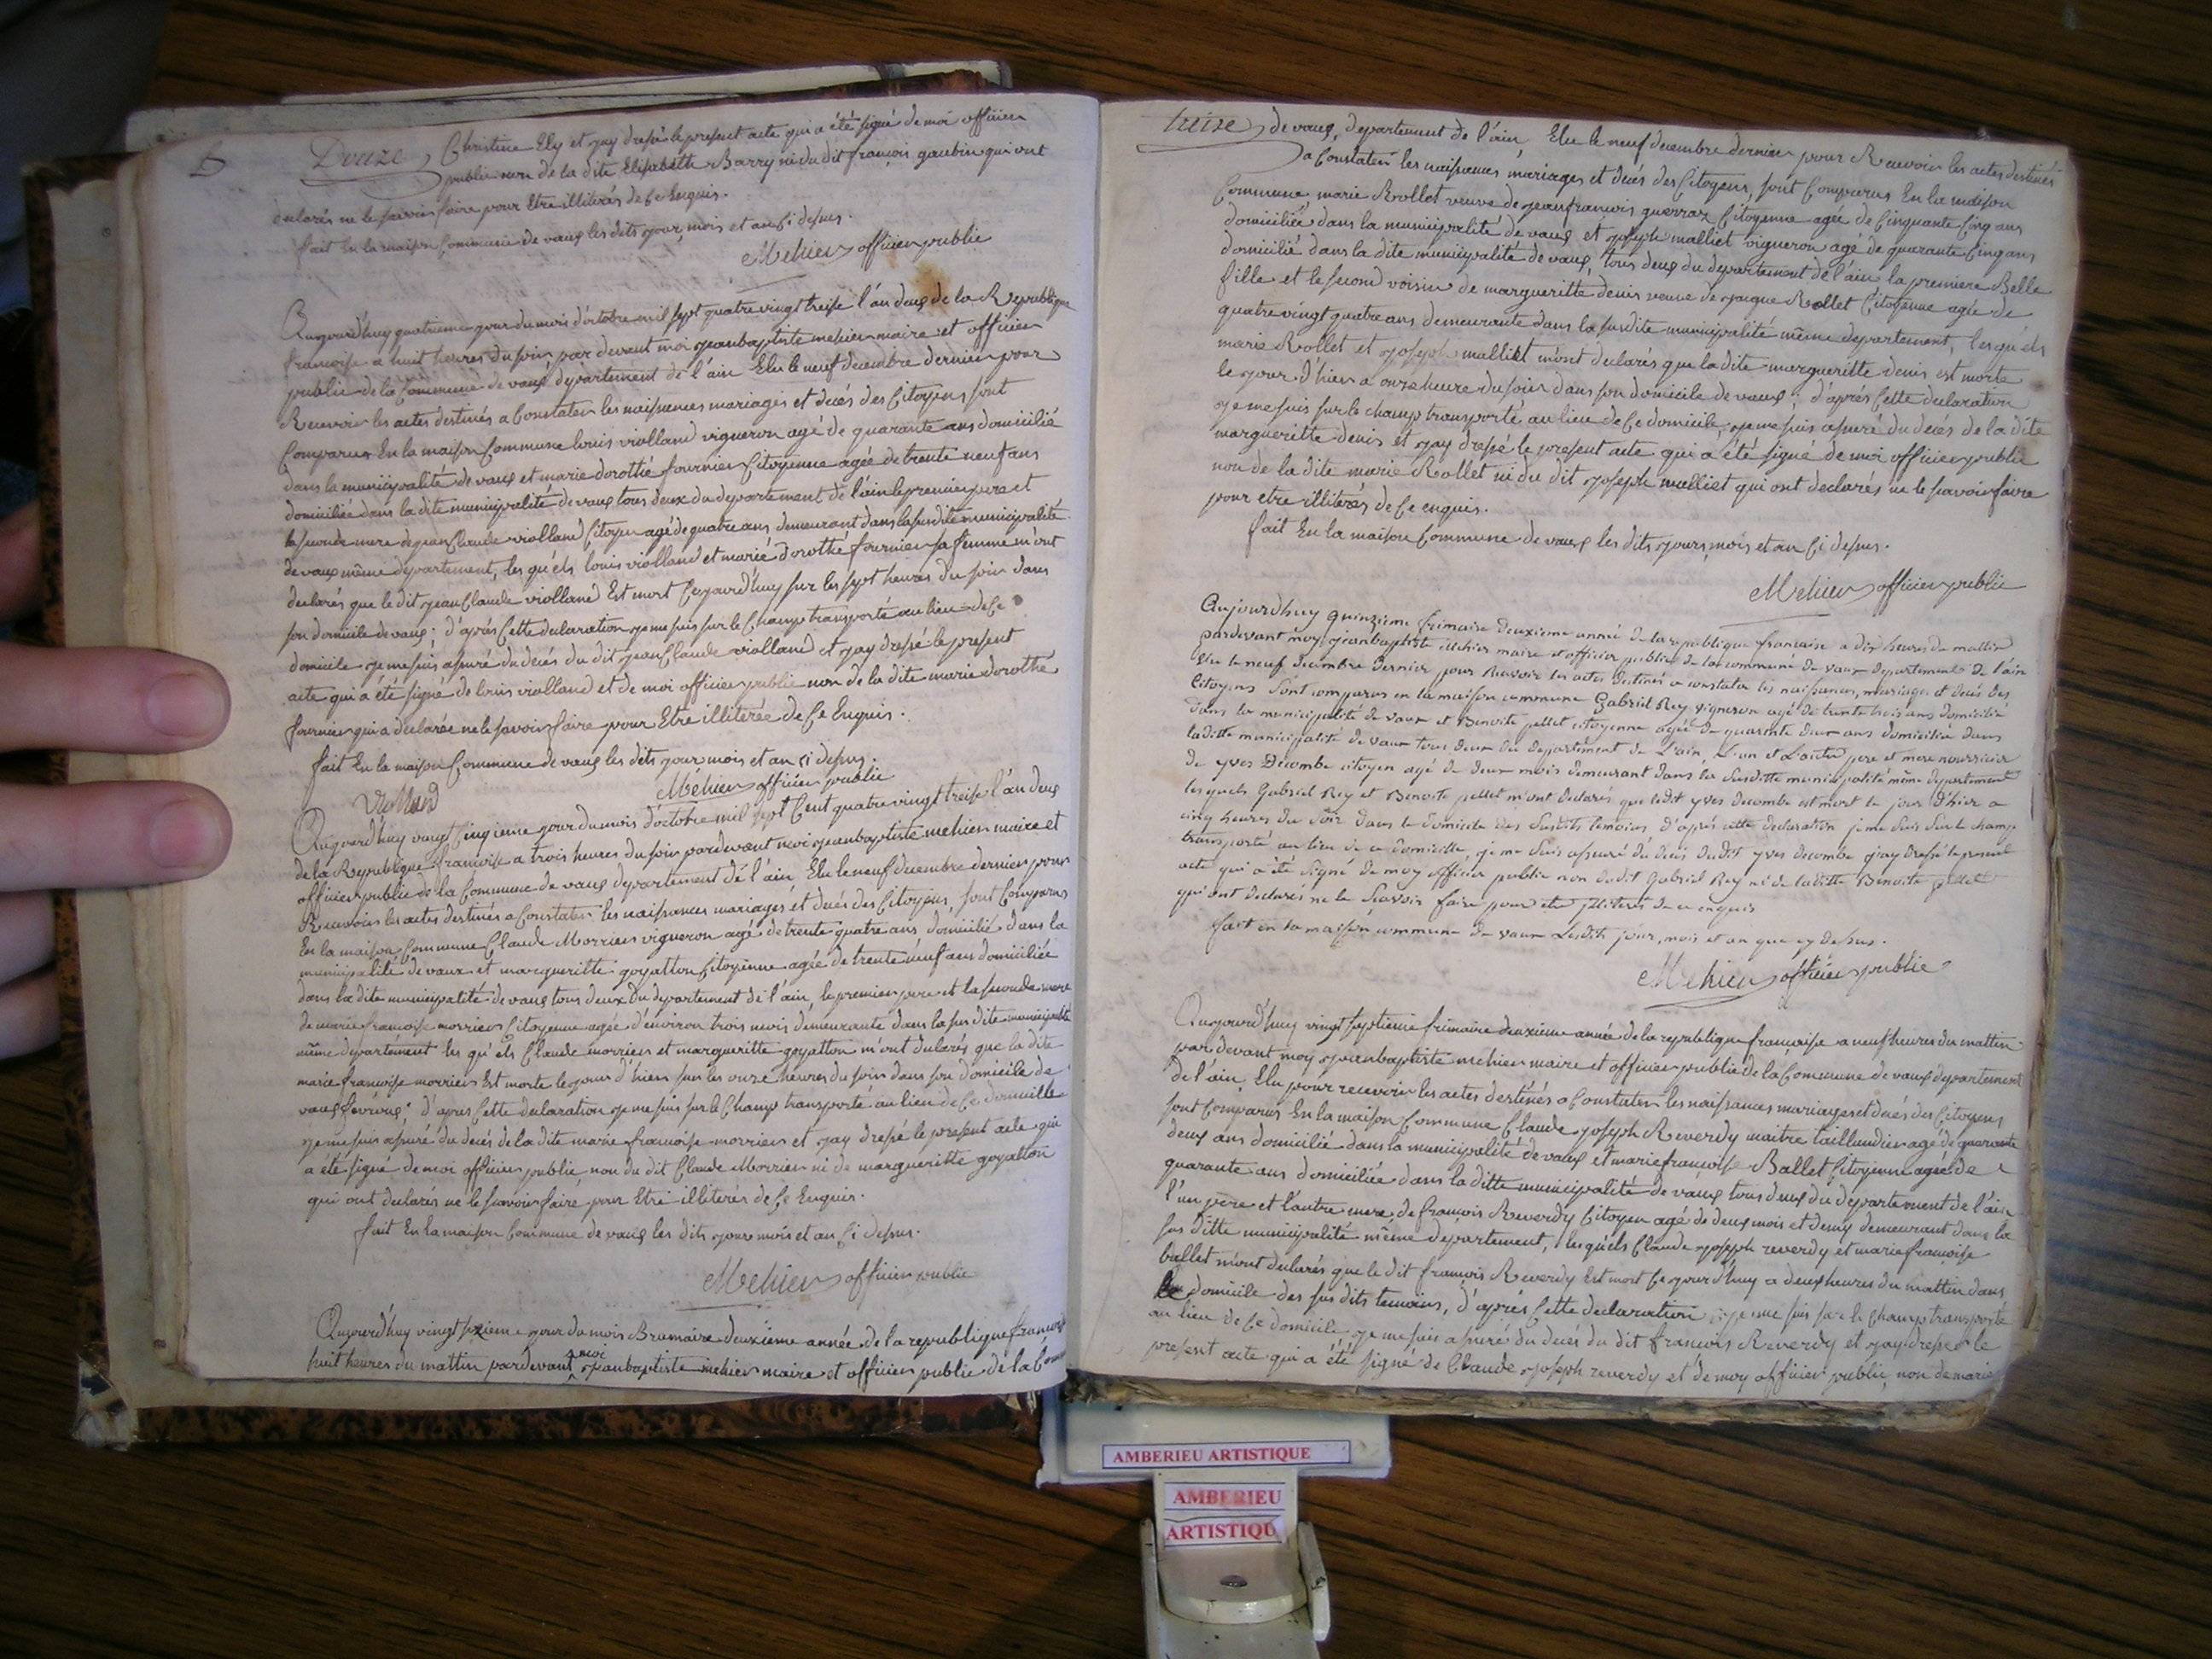 Douze Christine Ely et j'ay dressé le present acte qui a été signé de moi officier
public non de la dite Elisabeth Barry ni du dit françois gaubin qui ont
declarés ne le savoir faire pour Etre illiterés de Ce Enquis.
fait En la maison Commune de vaux les dits jour, mois et an Ci dessus.
Mehier officier public
Aujourd'huy quatrieme jour du mois d'octobre mil sept quatre vingt treise l'an deux de la Republique
francoise a huit heures du soir par devant moi jeanbaptiste mehier maire et officier
public de la Commune de vaux departement de l'ain Elu le neuf decembre dernier pour
Recevoir les actes destinés a Constater les naissances mariages et decés des Citoyens sont
Comparus En la maison Commune louis violland vigneron agé de quarante ans domicilié
dans la municipalité de vaux et marie dorothé fournier Citoyenne agée de trente neuf ans
domiciliée dans la dite municipalité de vaux tous deux du departement de l'ain le premier pere et
la seconde mere de jean Claude violland Citoyen agé de quatre ans demeurant dans la susdite municipalité
de vaux même departement, les qu'els louis violland et marie dorothé fournier sa femme m'ont
declarés que le dit jean Claude violland Est mort Cejourd'huy sur les sept heures du soir dans
son domicile de vaux; d'aprés Cette declaration je me suis sur le Champ transporté au lieu de Ce
domicile je me suis assuré du decés du dit jean Claude violland et j'ay dressé le present
acte qui a été signé de louis violland et de moi officier public non de la dite marie dorothé
fournier qui a declarée ne le savoir faire pour Etre illiterée de Ce Enquis.
fait En la maison Commune de vaux les dits jour mois et an ci dessus.
Mehier officier public
Violland
Aujourd'huy vingt Cinqieme jour du mois d'octobre mil sept Cent quatre vingt treise l'an deux
de la Republique francoise a trois heures du soir pardevant moi jeanbaptiste mehier maire et
officier public de la Commune de vaux departement de l'ain Elu le neuf decembre dernier pour
Recevoir les actes destinés a Constater les naissances mariages et decés des Citoyens, sont Comparus
En la maison Commune Claude Morrier vigneron agé de trente quatre ans domicilié dans la
municipalité de vaux et margueritte goyatton Citoyenne agée de trente neuf ans domiciliée
dans la dite municipalité de vaux tous deux du departement de l'ain, le premier pere et la seconde mere
de marie francoise morrier Citoyenne agée d'environ trois mois demeurante dans la sus dite municipalité
même departement les qu'els Claude morrier et margueritte goyatton m'ont declarés que la dite
marie francoise morrier Est morte le jour d'hier sur les onze heures du soir dans son domicile de
vaux fevroux; d'apres Cette declaration je me suis sur le Champ transporté au lieu de Ce domicille
je me suis assuré du decés de la dite marie francoise morrier et j'ay dressé le present acte qui
a été signé de moi officier public non du dit Claude Morrier ni de margueritte goyatton
qui ont declarés ne le savoir faire pour Etre illiterés de Ce Enquis.
fait En la maison Commune de vaux les dits jour mois et an Ci dessus.
Mehier officier public
Aujourd'huy vingt sixieme jour du mois Brumaire deuxieme année de la republique francoise
huit heures du mattin pardevant moi jeanbaptiste mehier maire et officier public de la Comm
treize de vaux, departement de l'ain Elu le neuf decembre dernier pour Recevoir les actes destinés
a Constater les naissances mariages et decés des Citoyens, sont Comparus En la maison
Commune, marie Rollet veuve de jeanfrancois guerraz Citoyenne agée de Cinquante Cinq ans
domiciliée dans la municipalité de vaux et joseph malliet vigneron agé de quarante Cinq ans
domicilié dans la dite municipalité de vaux, tous deux du departement de l'ain la premiere Belle
fille et le second voisin de margueritte denis veuve de jacque Rollet Citoyenne agée de
quatre vingt quatre ans demeurante dans la susdite municipalité même departement, lesqu'els
marie Rollet et joseph malliet m'ont declarés que la dite margueritte denis est morte
le jour d'hier a onze heure du soir dans son domicile de vaux; d'aprés Cette declaration
je me suis sur le champ transporté au lieu de Ce domicile, je me suis assuré du deces de la dite
margueritte denis et j'ay dressé le present acte qui a été signé de moi officier public
non de la dite marie Rollet ni du dit joseph malliet qui ont declarés ne le savoir faire
pour etre illiterés de Ce enquis.
fait En la maison Commune de vaux les dits jours, mois et an Ci dessus.
Mehier officier public
Aujourdhuy quinzieme frimaire deuxieme année de la republique francaise a dix heures du mattin
pardevant moy jeanbaptiste Mehier maire et officier public de la commune de vaux departement de l'ain
elu le neuf decembre dernier pour recevoir les actes destinés a constater les naissances, mariages et decés des
citoyens sont comparus en la maison commune Gabriel Rey vigneron agé de trente trois ans domicilié
dans la municipalité de vaux et Benoite pellet citoyenne agée de quarente deux ans domiciliée dans
laditte municipalité de vaux tous deux du departement de l'ain, l'un et l'autre pere et mere nourricier
de yves Decombe citoyen agé de deux mois demeurant dans la susditte municipalité même departement
lesquels Gabriel Rey et Benoite pellet m'ont declarés que ledit yves decombe est mort le jour d'hier a
cinq heures du soir dans le domicile des susdits temoins d'après cette declaration je me suis sur le champ
transporté au lieu de ce domicille, je me suis assuré du decés dudit yves decombe j'ay dressé le present
acte qui a été signé de moy officier public non dudit Gabriel Rey ni de laditte Benoite pellet
qui ont declarés ne le sçavoir faire pour etre illiterés de ce enquis
fait en la maison commune de vaux lesdits jour, mois et an que cy dessus.
Mehier officier public
Aujourd'huy vingt septieme frimaire deuxieme année de la republique francoise a neuf heures du mattin
par devant moy jeanbaptiste mehier maire et officier public de la Commune de vaux departement
de l'ain, Elu pour recevoir les actes destinés a Constater les naissances mariages et decés des Citoyens
sont Comparus En la maison Commune Claude joseph Reverdy maitre taillandier agé de quarante
deux ans domicilié dans la municipalité de vaux et marie francoise Ballet Citoyenne agée de
quarante ans domiciliée dans la ditte municipalité de vaux tous deux du departement de l'ain
l'un pere et l'autre mere de francois Reverdy Citoyen agé de deux mois et demy demeurant dans la
sus ditte municipalité même departement, lesqu'els Claude joseph reverdy et marie francoise
ballet m'ont declarés que le dit francois Reverdy Est mort Ce jourd'huy a deux heures du mattin dans
le domicile des sus dits temoins, d'aprés Cette declaration je me suis sur le champ transporté
au lieu de Ce domicile je me suis assuré du decés du dit francois Reverdy et j'ay dressé le
present acte qui a été signé de Claude joseph reverdy et de moy officier public, non de marie
AMBERIEU ARTISTIQUE
AMBERIEU
ARTISTIQU